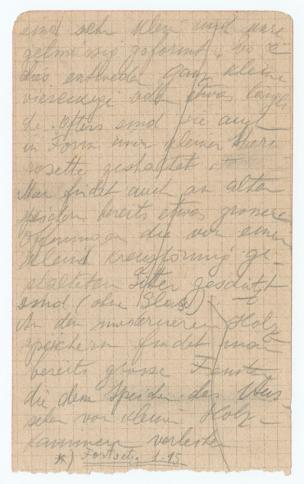 sind sehr klein und
geformt,
das entweder ganz kleine
viereckige oder etwas
Öfters sind sie auch
in Form einer kleinen
rosette gestaltet.
Man findet auch an alten
Speichern bereits etwas grössere
Öffnungen die von einem
kleinen kreuzförmig ge-
stalteten Gitter geschützt
sind (ohne Glas)
An den moderneren Holz
speichern findet man
bereits grosse Fenster
die dem Speicher das Aus
sehen von kleinen Holz-
kammern verleihen
*) Fortsetz. 1.95